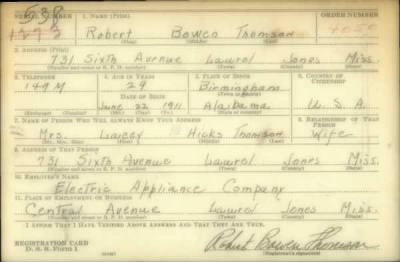 SERIAL NUMBER 1. NAME (Print) ORDER NUMBER
538
Robert Bowen Thomson
(First) (Middle) (Last)
2. ADDRESS (Print)
731 Sixth Avenue Laurel Jones Miss.
(Number and street or R. F. D. number) (Town) (County) (State)
3. TELEPHONE 4. AGE IN YEARS 5. PLACE OF BIRTH 6. COUNTRY OF CITIZENSHIP
149M 29 Birmingham
DATE OF BIRTH (Town or county)
June 22 1911 Alabama U. S. A.
(Exchange) (Number) (Mo.) (Day) (Yr.) (State or country)
7. NAME OF PERSON WHO WILL ALWAYS KNOW YOUR ADDRESS 8. RELATIONSHIP OF THAT PERSON
Mrs. Hicks Thomson Wife
(Mr., Mrs., Miss) (First) (Middle) (Last)
9. ADDRESS OF THAT PERSON
731 Sixth Avenue Laurel Jones Miss.
(Number and street or R. F. D. number) (Town) (County) (State)
10. EMPLOYER'S NAME
Electric Appliance Company
11. PLACE OF EMPLOYMENT OR BUSINESS
Central Avenue Laurel Jones Miss.
(Number and street or R. F. D. number) (Town) (County) (State)
I AFFIRM THAT I HAVE VERIFIED ABOVE ANSWERS AND THAT THEY ARE TRUE.
REGISTRATION CARD
D. S. S. Form 1
Robert Bowen Thomson
(Registrant's signature)